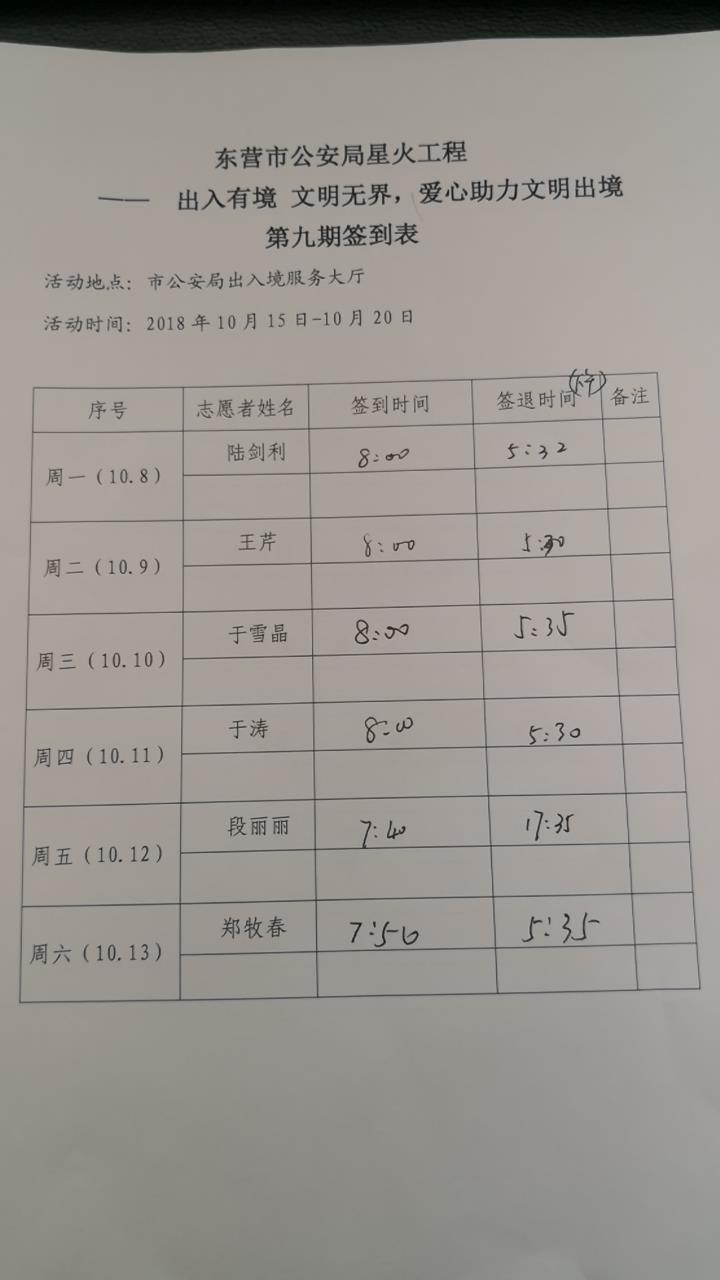 东营市公安局星火工程
—— 出入有境 文明无界，爱心助力文明出境
第九期签到表
活动地点：市公安局出入境服务大厅
活动时间：2018年10月15日-10月20日
序号 志愿者姓名 签到时间 签退时间(下午) 备注
周一（10.8） 陆剑利 8:00 5:32
周二（10.9） 王芹 8:00 5:30
周三（10.10） 于雪晶 8:00 5:35
周四（10.11） 于涛 8:00 5:30
周五（10.12） 段丽丽 7:40 17:35
周六（10.13） 郑牧春 7:50 5:35